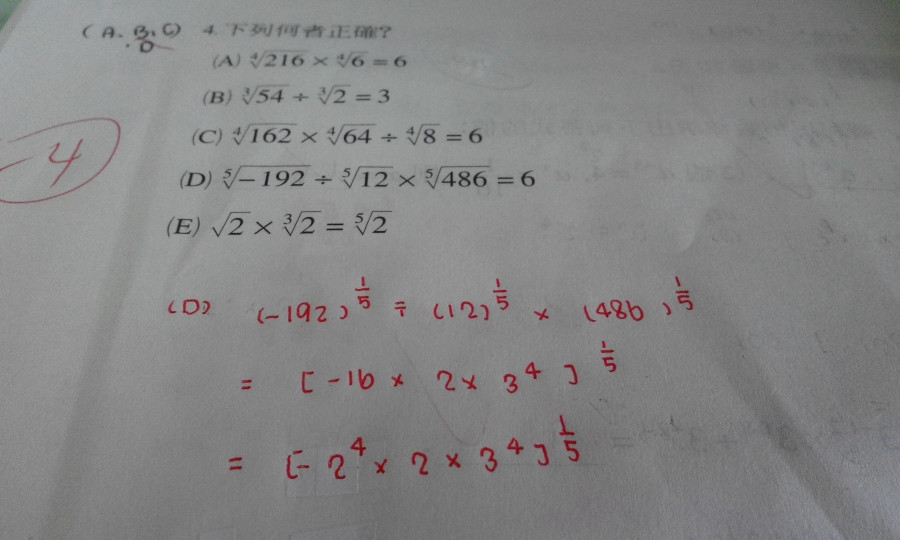 (A、B、C) 4.下列何者正確?
D
(A) ∜216 × ∜6 = 6
(B) ∛54 ÷ ∛2 = 3
-4
(C) ∜162 × ∜64 ÷ ∜8 = 6
(D) ⁵√-192 ÷ ⁵√12 × ⁵√486 = 6
(E) √2 × ∛2 = ⁵√2
(D) (-192)^(1/5) ÷ (12)^(1/5) × (486)^(1/5)
= [-16 × 2 × 3⁴]^(1/5)
= [-2⁴ × 2 × 3⁴]^(1/5)